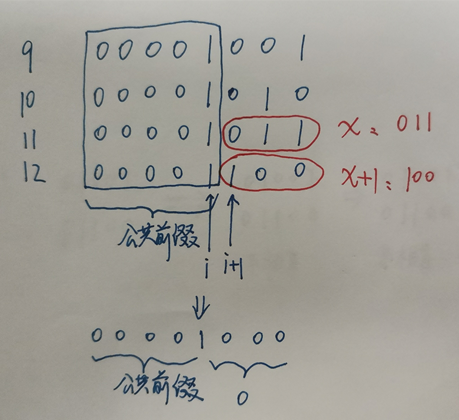 9 0 0 0 0 1 0 0 1
10 0 0 0 0 1 0 1 0
11 0 0 0 0 1 0 1 1 x: 011
12 0 0 0 0 1 1 0 0 x+1: 100
公共前缀 i i+1
0 0 0 0 1 0 0 0
公共前缀 0